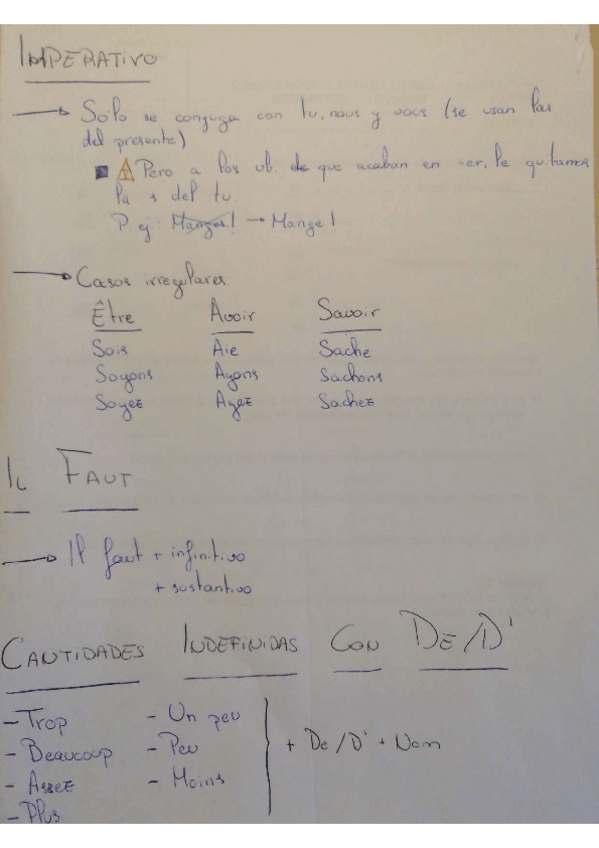 IMPERATIVO
→ Sólo se conjuga con tu, nous y vous (se usan las
del presente)
Pero a los vb. de que acaban en -er, le quitamos
la s del tu
P. ej: Manges! → Mange!
→ Casos irregulares:
Être Avoir Savoir
Sois Aie Sache
Soyons Ayons Sachons
Soyez Ayez Sachez
IL FAUT
→ Il faut + infinitivo
+ sustantivo
CANTIDADES INDEFINIDAS CON DE/D'
- Trop - Un peu
- Beaucoup - Peu + De/D' + Nom
- Assez - Moins
- Plus